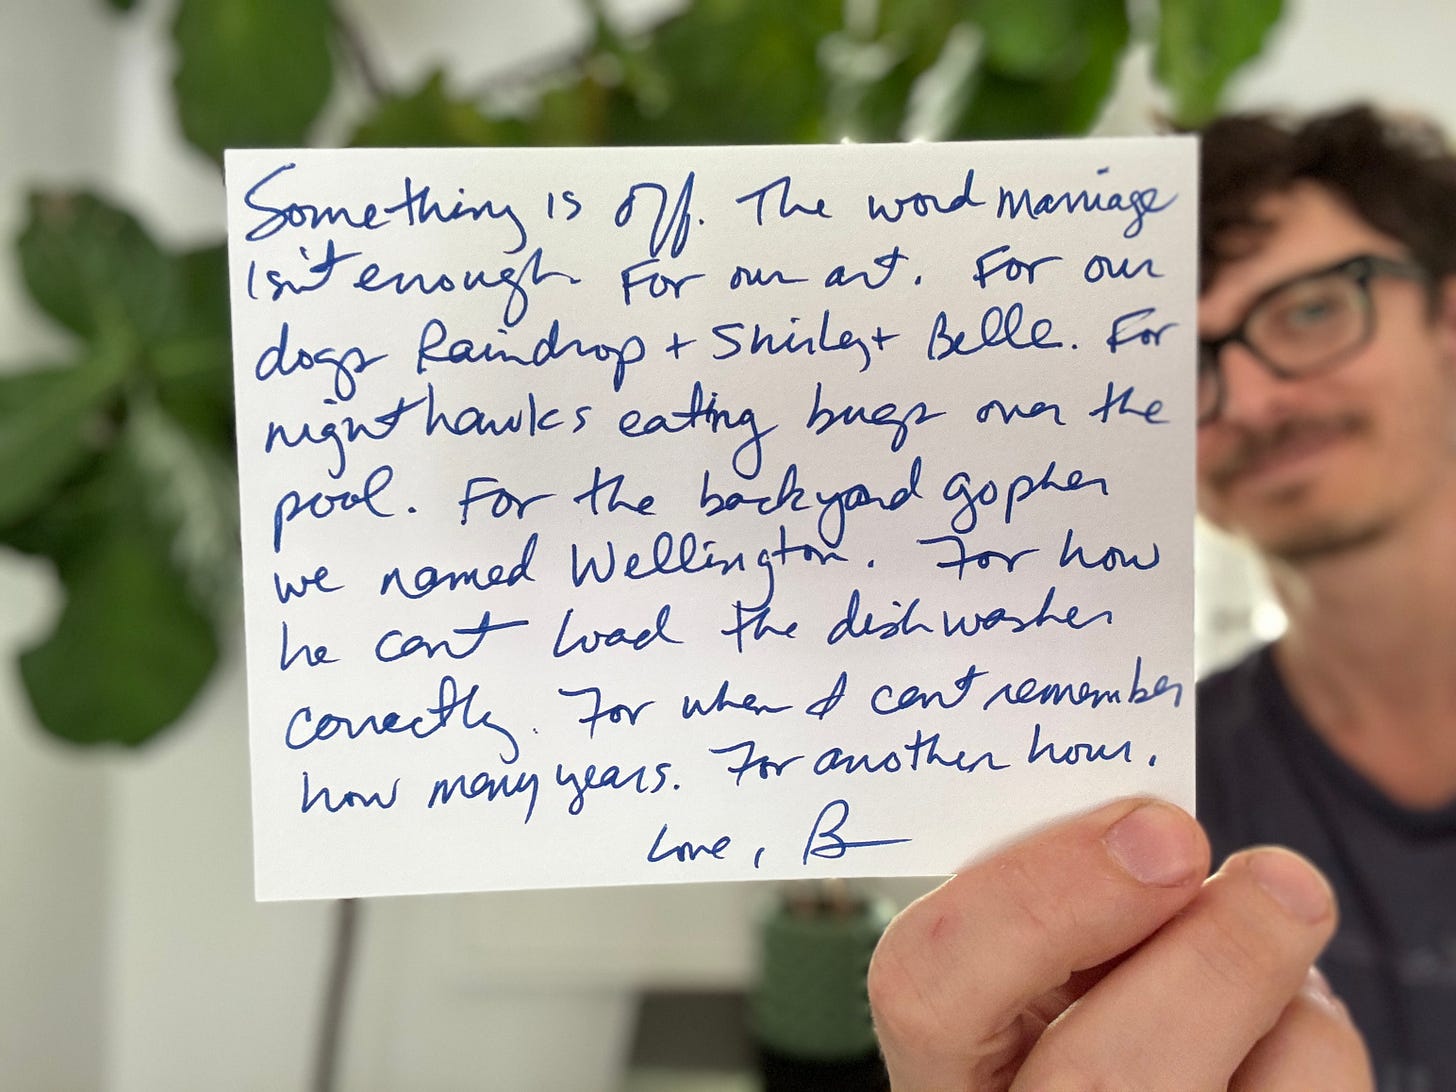 Something is off. The word marriage
isn't enough. For our art. For our
dogs Raindrop + Shirley + Belle. For
nighthawks eating bugs over the
pool. For the backyard gopher
we named Wellington. For how
he can't load the dishwasher
correctly. For when I can't remember
how many years. For another hour.
Love, B